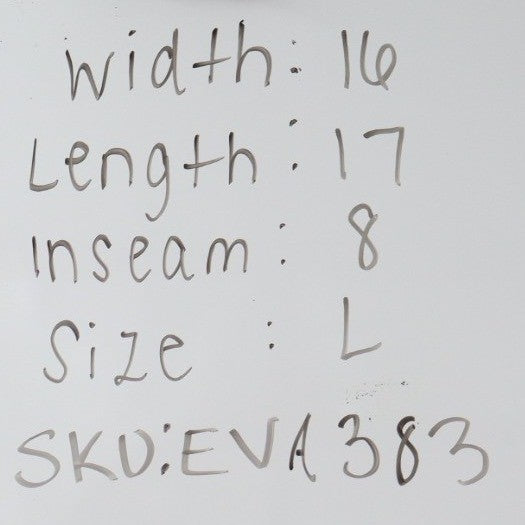 Width: 16
Length: 17
Inseam: 8
Size : L
SKU:EVA383